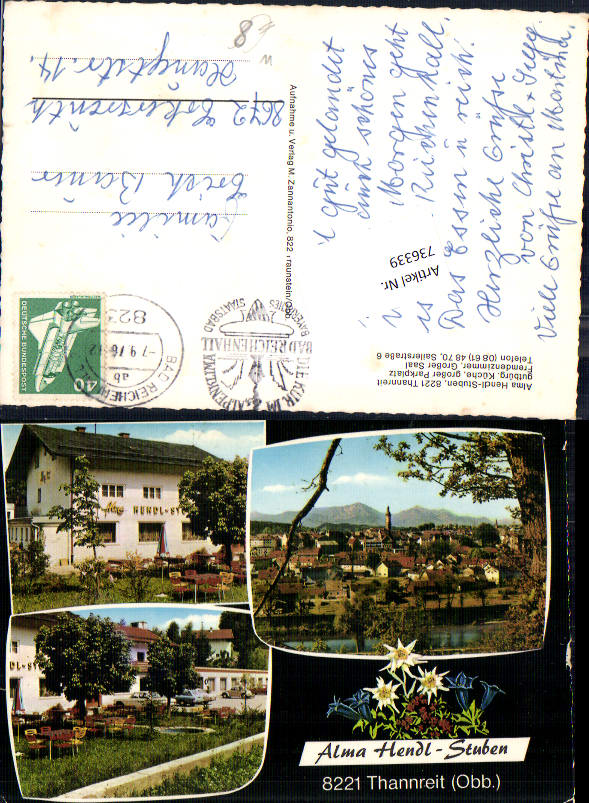 Alma Hendl-Stuben, 8221 Thannreit
gutbürg. Küche, Großer Parkplatz
Fremdenzimmer, Großer Saal
Telefon (08 61) 48 70, Sailerstraße 6
i gut gelandet
auch schönes
Morgen geht
Küchen kalt.
Das Essen is reich.
Herzliche Grüße
von Christl
Viele Grüße an
Artikel Nr.
736339
Aufnahme u. Verlag M. Zannantonio, 822 Traunstein/Obb.
DEUTSCHE BUNDESPOST
40
823
-7.9.76-12
ab
BAD REICHENHALL
DIE KUR IM ALPENKLIMA
BAD REICHENHALL
BAYERISCHES STAATSBAD
Familie
Erich Bauer
8672
Hauptstr. 14
8
HENDL-ST
DL-ST
Alma Hendl-Stuben
8221 Thannreit (Obb.)